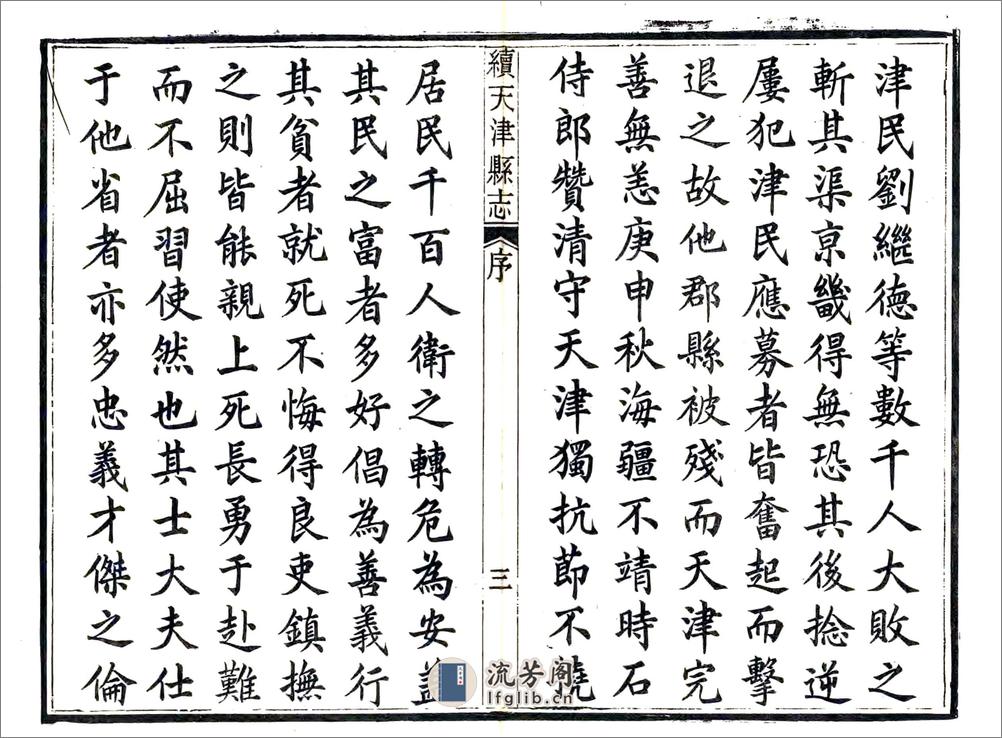 津民劉繼德等數千人大敗之
斬其渠京畿得無恐其後捻逆
屢犯津民應募者皆奮起而擊
退之故他郡縣被殘而天津完
善無恙庚申秋海疆不靖時石
侍郎贊清守天津獨抗節不撓
續天津縣志
序
三
居民千百人衛之轉危為安蓋
其民之富者多好倡為善義行
其貧者就死不悔得良吏鎮撫
之則皆能親上死長勇于赴難
而不屈習使然也其士大夫仕
于他省者亦多忠義才傑之倫
流芳阁
lfglib.cn